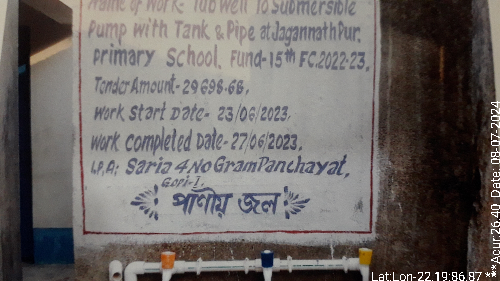 Name of Work- TubWell To Submersible
Pump with Tank & Pipe at Jagannathpur,
primary School. Fund-15th FC.2022-23,
Tender Amount- 29698-68,
Work Start Date- 23/06/2023,
Work Completed Date- 27/06/2023,
I.P.A: Saria 4 No Gram Panchayat,
Gopi-I,
পানীয় জল
Lat:Lon-22.19:86.87 ***Acur:26.40 Date: 08-07-2024